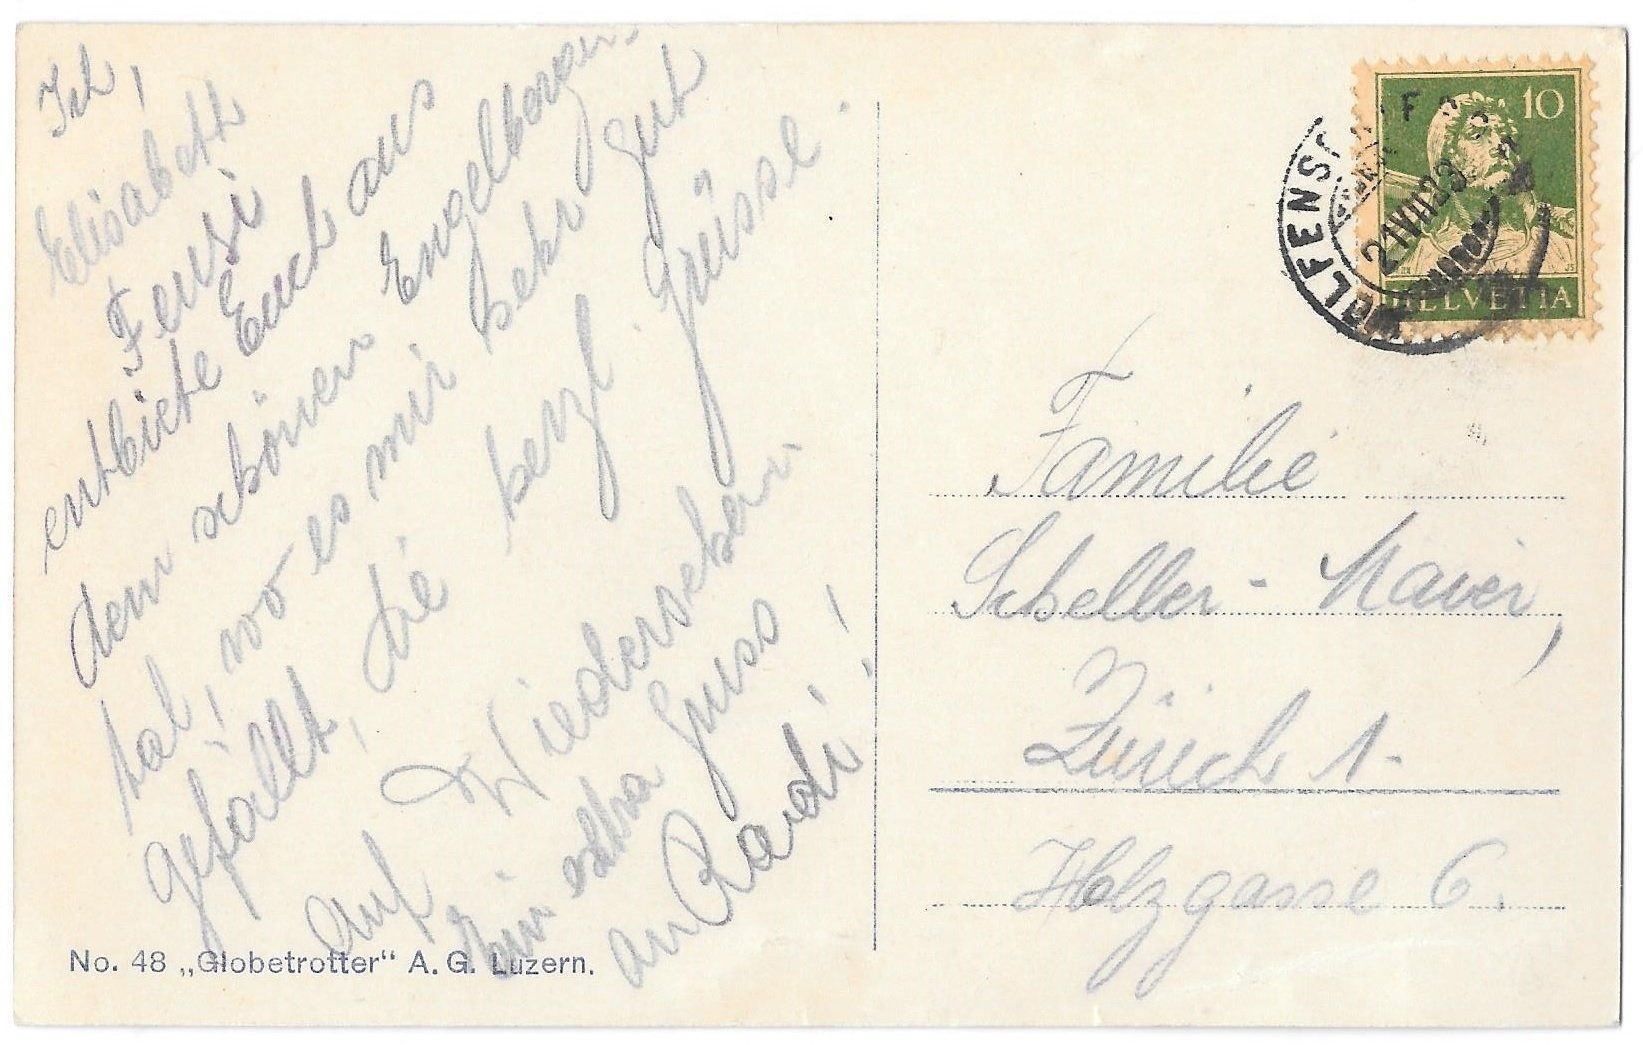 Ich,
Elisabeth
Feusi
entbiete Euch aus
dem schönen Engelberger-
tal, wo es mir sehr gut
gefällt, die herzl. Grüsse.
Auf Wiedersehen
Ein extra Gruss
an Raudi!
No. 48 „Globetrotter“ A. G. Luzern.
10
HELVETIA
21 VII 23
Familie
Scheller-Maier,
Zürich 1.
Holzgasse 6.